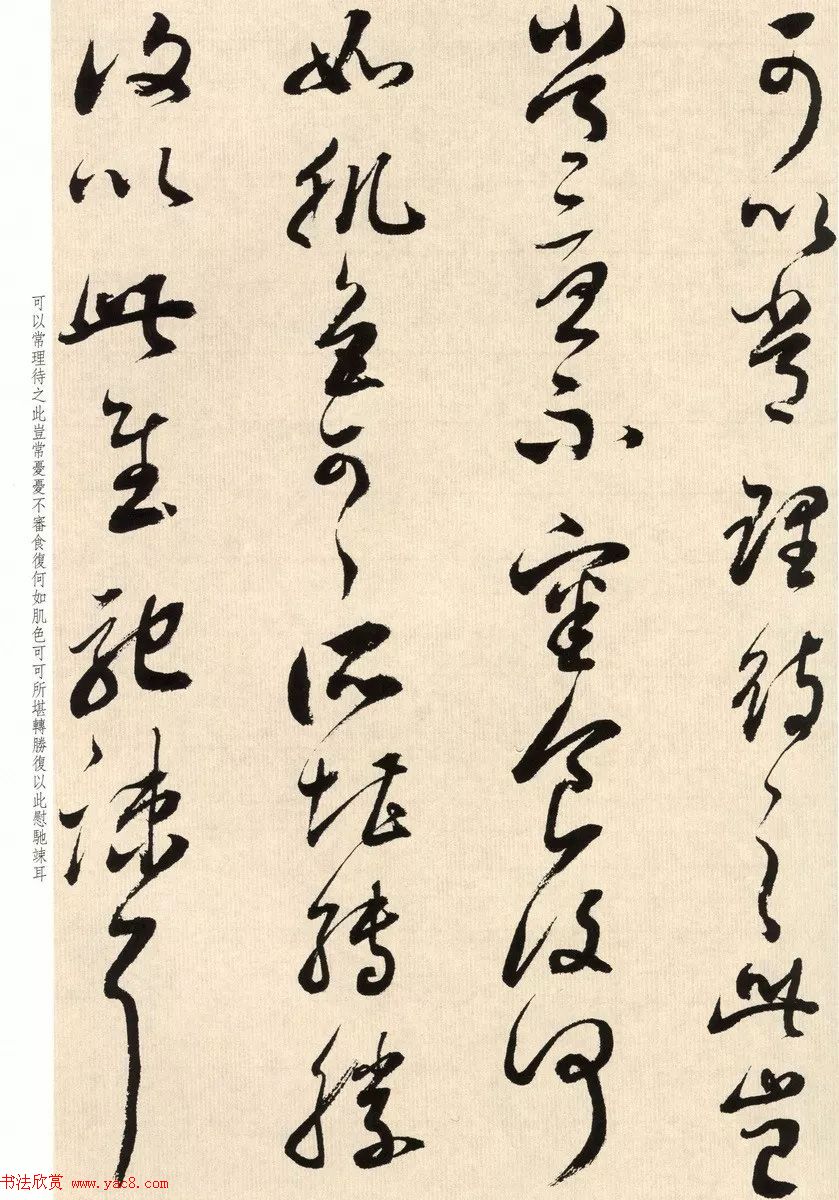 可以常理待之此豈
常憂憂不審食復何
如肌色可可所堪轉勝
復以此慰馳竦耳
可以常理待之此豈常憂憂不審食復何如肌色可可所堪轉勝復以此慰馳竦耳
书法欣赏 www.yac8.com